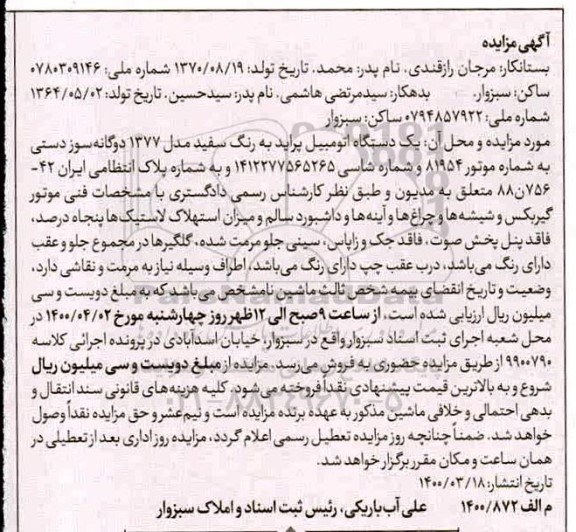 آگهی مزایده
بستانکار: مرجان رازقندی. نام پدر: محمد. تاریخ تولد: ۱۳۷۰/۰۸/۱۹ شماره ملی: ۰۷۸۰۳۰۹۱۴۶
ساکن: سبزوار. بدهکار: سیدمرتضی هاشمی. نام پدر: سیدحسین. تاریخ تولد: ۱۳۶۴/۰۵/۰۲
شماره ملی: ۰۷۹۴۸۵۷۹۲۲ ساکن: سبزوار
مورد مزایده و محل آن: یک دستگاه اتومبیل پراید به رنگ سفید مدل ۱۳۷۷ دوگانه‌سوز دستی
به شماره موتور ۸۱۹۵۴ و شماره شاسی ۱۴۱۲۲۷۷۵۶۵۲۶۵ و به شماره پلاک انتظامی ایران ۴۲-
۷۵۶ن۸۸ متعلق به مدیون و طبق نظر کارشناس رسمی دادگستری با مشخصات فنی موتور
گیربکس و شیشه‌ها و چراغ‌ها و آینه‌ها و داشبورد سالم و میزان استهلاک لاستیک‌ها پنجاه درصد،
فاقد پنل پخش صوت، فاقد جک و زاپاس، سینی جلو مرمت شده، گلگیرها در مجموع جلو و عقب
دارای رنگ می‌باشد، درب عقب چپ دارای رنگ می‌باشد، اطراف وسیله نیاز به مرمت و نقاشی دارد،
وضعیت و تاریخ انقضای بیمه شخص ثالث ماشین نامشخص می‌باشد که به مبلغ دویست و سی
میلیون ریال ارزیابی شده است، از ساعت ۹ صبح الی ۱۲ ظهر روز چهارشنبه مورخ ۱۴۰۰/۰۴/۰۲ در
محل شعبه اجرای ثبت اسناد سبزوار واقع در سبزوار، خیابان اسدآبادی در پرونده اجرائی کلاسه
۹۹۰۰۷۹۰ از طریق مزایده حضوری به فروش می‌رسد. مزایده از مبلغ دویست و سی میلیون ریال
شروع و به بالاترین قیمت پیشنهادی نقداً فروخته می‌شود. کلیه هزینه‌های قانونی سند انتقال و
بدهی احتمالی و خلافی ماشین مذکور به عهده برنده مزایده است و نیم عشر و حق مزایده نقداً وصول
خواهد شد. ضمناً چنانچه روز مزایده تعطیل رسمی اعلام گردد، مزایده روز اداری بعد از تعطیلی در
همان ساعت و مکان مقرر برگزار خواهد شد.
تاریخ انتشار: ۱۴۰۰/۰۳/۱۸
م الف ۱۴۰۰/۸۷۲ علی آب‌باریکی، رئیس ثبت اسناد و املاک سبزوار